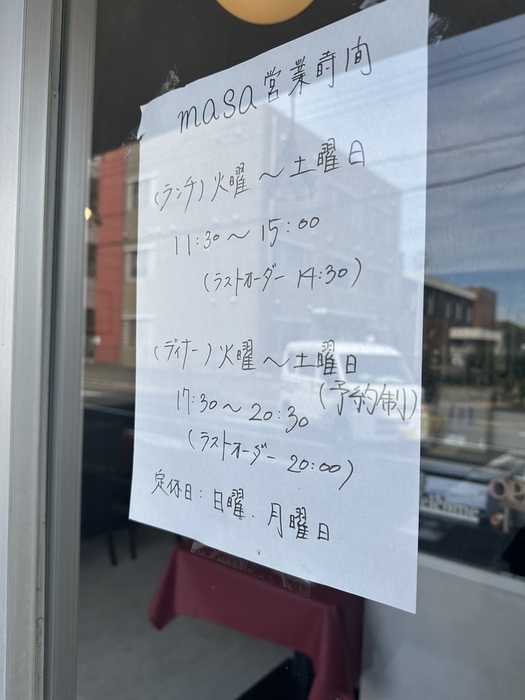 masa 営業時間
(ランチ) 火曜 ~ 土曜日
11:30 ~ 15:00
(ラストオーダー 14:30)
(ディナー) 火曜 ~ 土曜日
(予約制)
17:30 ~ 20:30
(ラストオーダー 20:00)
定休日: 日曜. 月曜日
Welcome